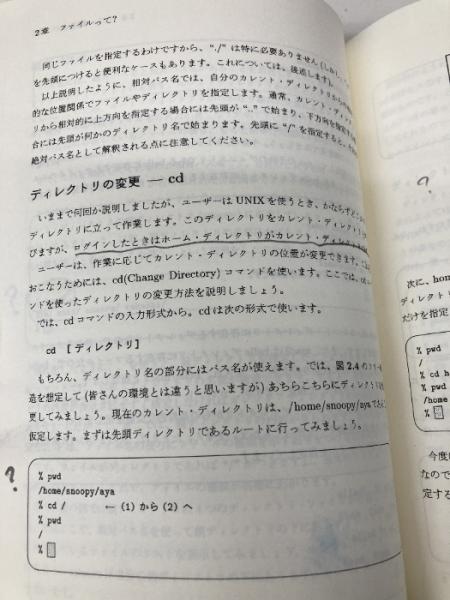 2章 ファイルって?
同じファイルを指定するわけですから、“./”は特に必要ありません
を先頭につけると便利なケースもあります。これについては、後述します)。
以上説明したように、相対パス名では、自分のカレント・ディレクトリからの
的な位置関係でファイルやディレクトリを指定します。通常、カレント・ディレクト
リから相対的に上方向を指定する場合には先頭が“..”で始まり、下方向を指定する
合には先頭が何かのディレクトリ名で始まります。先頭に“/”を指定すると、
絶対パス名として解釈される点に注意してください。
ディレクトリの変更 ― cd
いままで何回か説明しましたが、ユーザーはUNIXを使うとき、かならずどこかの
ディレクトリに立って作業します。このディレクトリをカレント・ディレクトリ
びますが、ログインしたときはホーム・ディレクトリがカレント・ディレクトリ
ユーザーは、作業に応じてカレント・ディレクトリの位置が変更できます。
おこなうためには、cd(Change Directory) コマンドを使います。ここでは、cd
ンドを使ったディレクトリの変更方法を説明しましょう。
では、cdコマンドの入力形式から。cdは次の形式で使います。
cd [ディレクトリ]
もちろん、ディレクトリ名の部分にはパス名が使えます。では、図2.4の
造を想定して(皆さんの環境とは違うと思いますが) あちらこちらにディレクトリを
更してみましょう。現在のカレント・ディレクトリは、/home/snoopy/aya
仮定します。まずは先頭ディレクトリであるルートに行ってみましょう。
?
% pwd
/home/snoopy/aya
% cd / ← (1) から (2) へ
% pwd
/
%
?
次に、hom
ディレクト
だけを指定
% pwd
/
% cd h
% pwd
/home
%
今度は
なので
定する